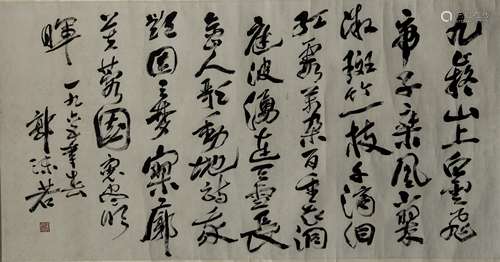 九嶷山上白雲飛
帝子乘風下翠
微斑竹一枝千滴泪
红霞萬朵百重衣洞
庭波湧連天雪長
島人歌動地詩我
欲因之夢寥廓
芙蓉國裏尽朝
暉 一九六
郭沫若